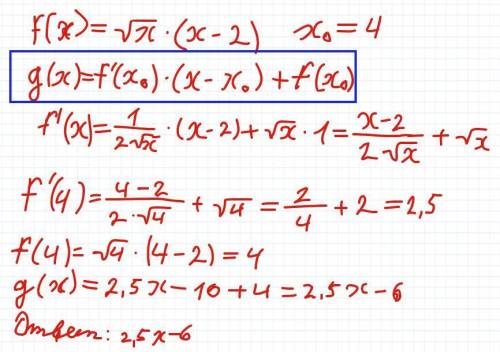 f(x)=√x·(x-2) x₀=4
g(x)=f'(x₀)·(x-x₀)+f(x₀)
f'(x)=1/(2√x)·(x-2)+√x·1=(x-2)/(2√x)+√x
f'(4)=(4-2)/(2·√4)+√4=2/4+2=2,5
f(4)=√4·(4-2)=4
g(x)=2,5x-10+4=2,5x-6
Ответ: 2,5x-6